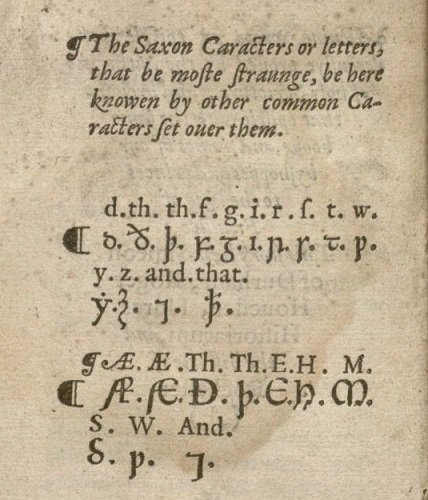 ¶ The Saxon Caracters or letters,
that be moſte ſtraunge, be here
knowen by other common Ca-
racters ſet ouer them.
d. th. th. f. g. i. r. ſ. t. w.
¶ ꝺ. ð. þ. ꝼ. ᵹ. ı. ꞃ. ꞅ. ꞇ. ƿ.
y. z. and. that.
ẏ. ꝣ. ⁊. ꝥ.
¶ Æ. Æ. Th. Th. E. H. M.
¶ Æ. Æ. Ð. Þ. E. H. M.
S. W. And.
S. Ƿ. ⁊.